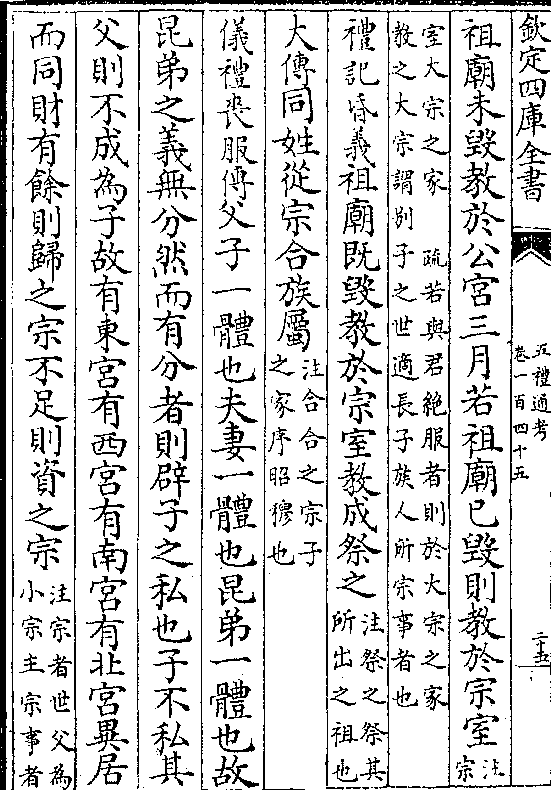 欽定四庫全書
五禮通考
卷一百四十五
二十五
祖廟未毀教於公宮三月若祖廟已毀則教於宗室注
宗
室大宗之家　疏若與君絶服者則於大宗之家
教之大宗謂别子之世適長子族人所宗事者也
禮記昏義祖廟既毀教於宗室教成祭之注祭之祭其
所出之祖也
大傳同姓從宗合族屬注合合之宗子
之家序昭穆也
儀禮喪服傳父子一體也夫妻一體也昆弟一體也故
昆弟之義無分然而有分者則辟子之私也子不私其
父則不成為子故有東宮有西宮有南宮有北宮異居
而同財有餘則歸之宗不足則資之宗注宗者世父為
小宗主宗事者